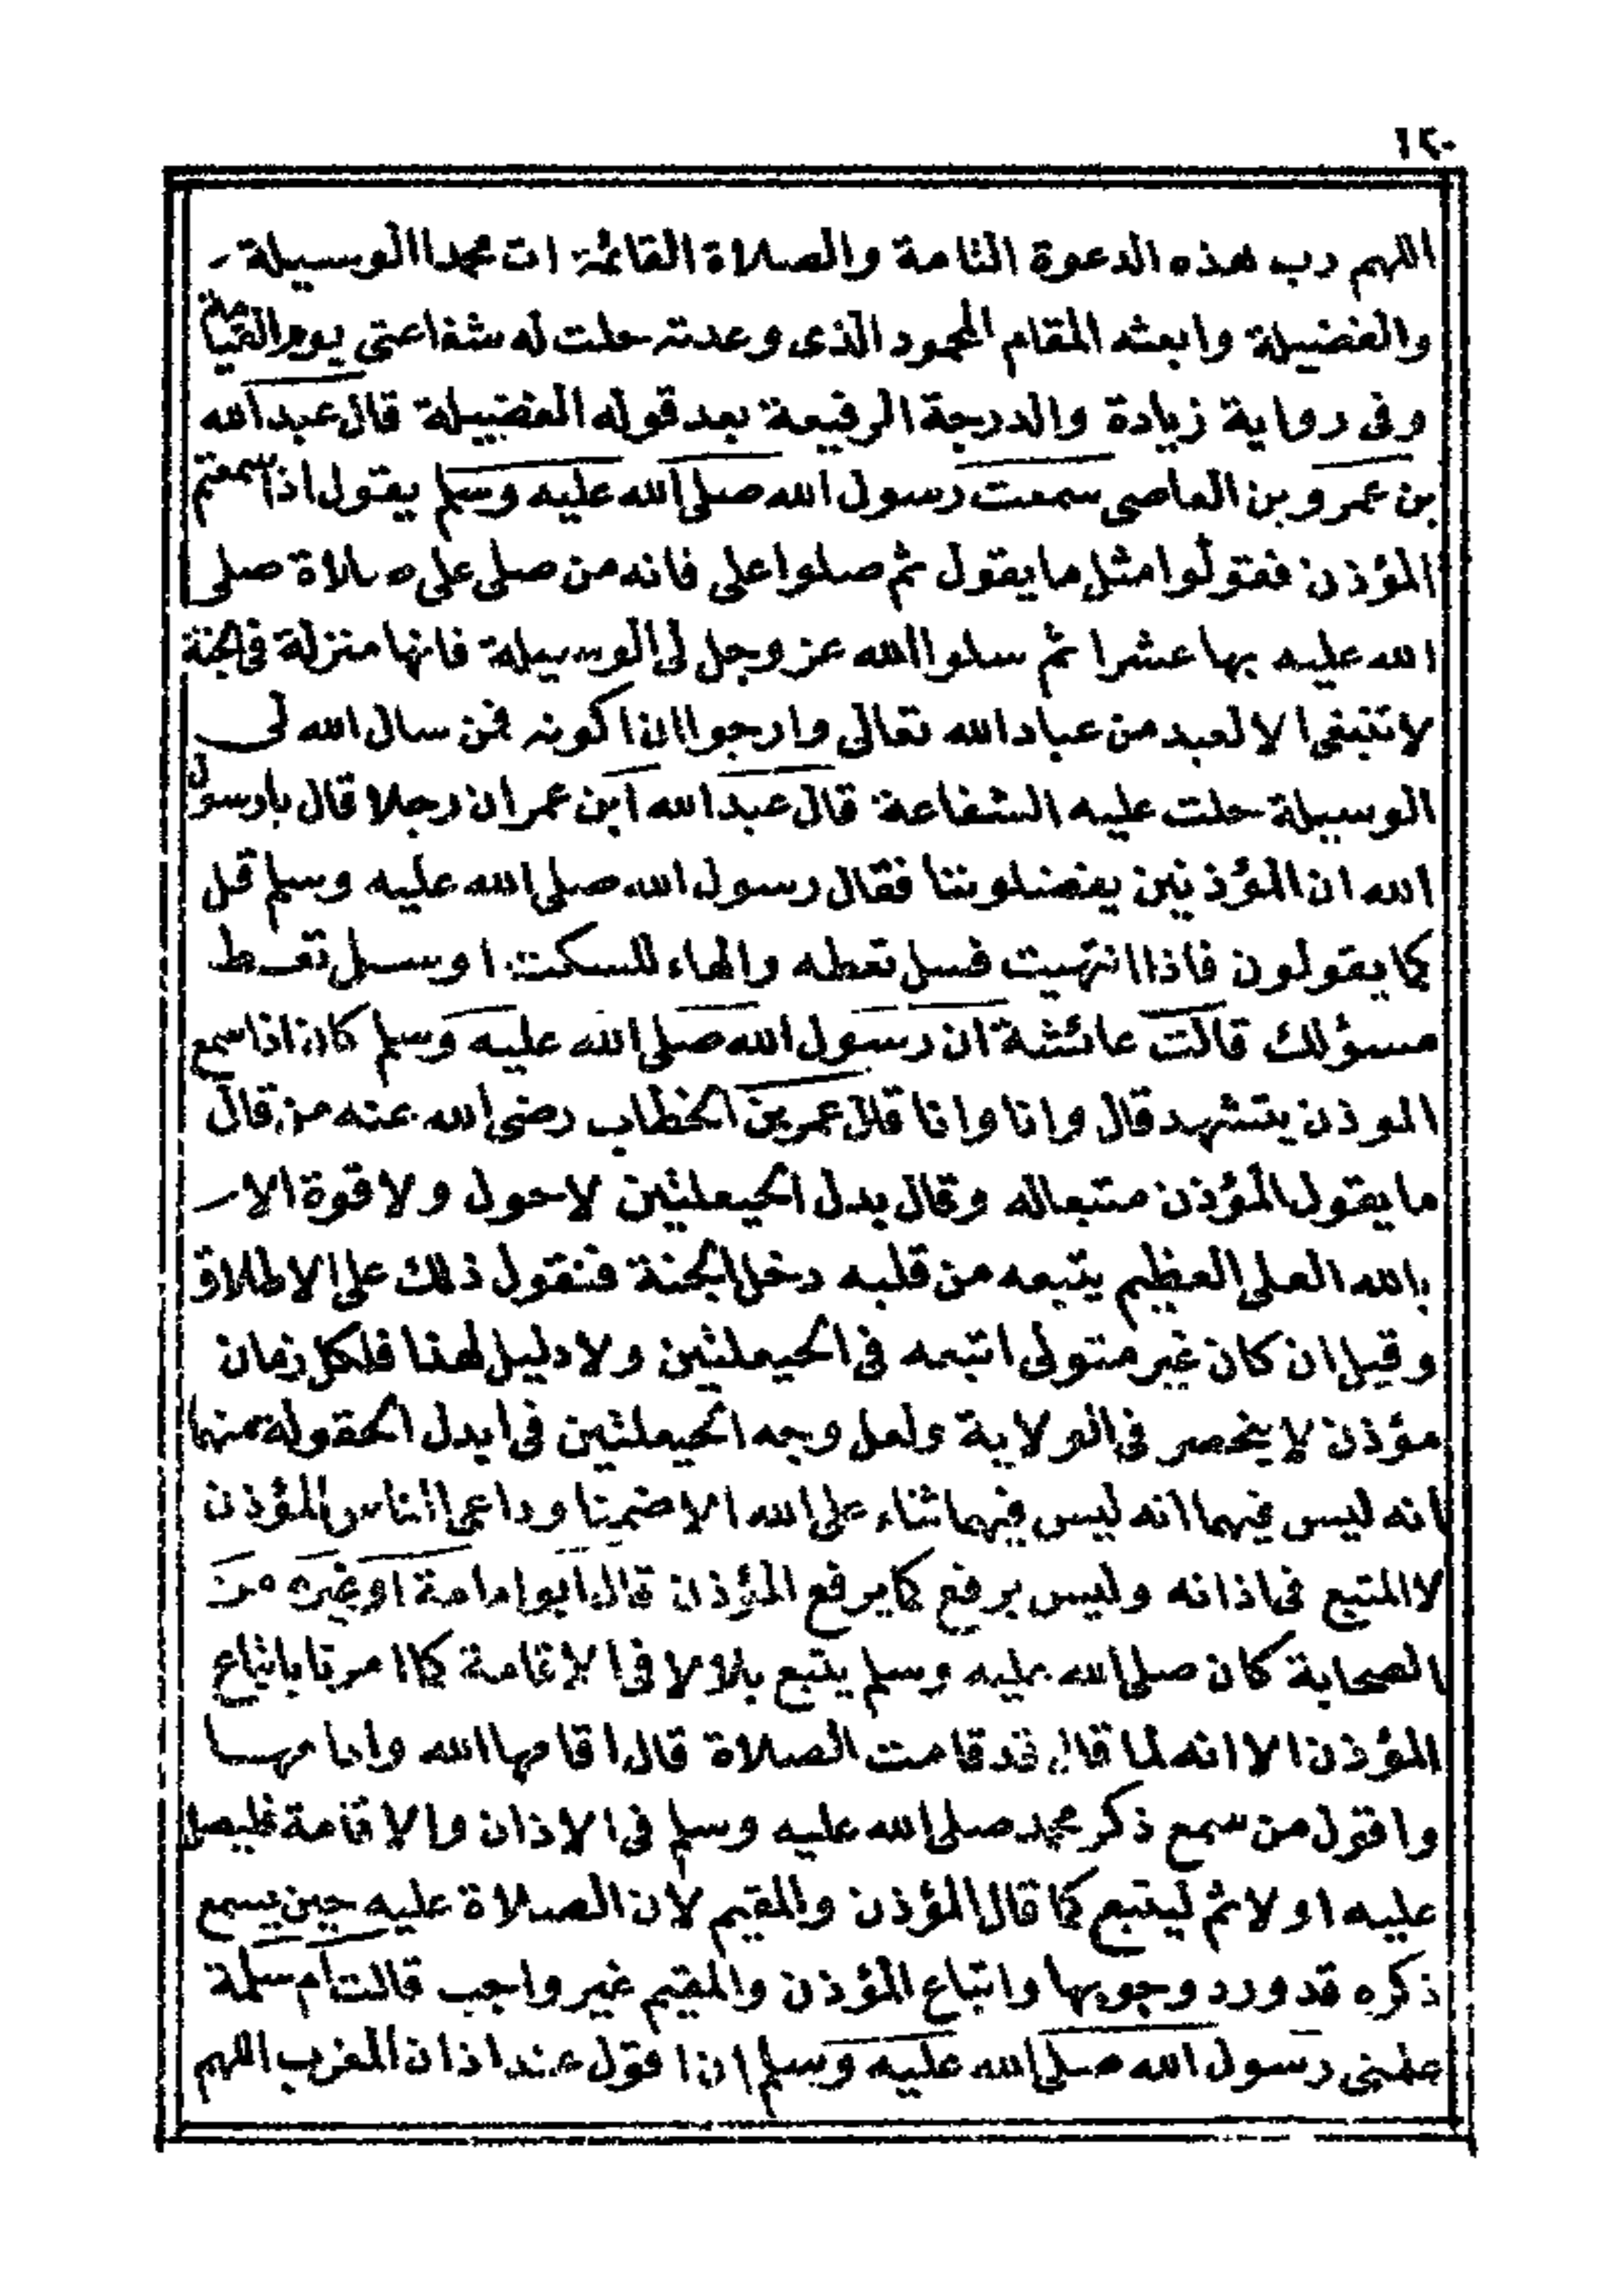 ١٢٠
اللهم رب هذه الدعوة التامة والصلاة القائمة ات محمدا الوسيلة
والفضيلة وابعثه المقام المحمود الذى وعدته حلت له شفاعتى يوم القيامة
وفى رواية زيادة والدرجة الرفيعة بعد قوله الفضيلة قال عبد الله
بن عمرو بن العاصى سمعت رسول الله صلى الله عليه وسلم يقول اذا سمعتم
المؤذن فقولوا مثل ما يقول ثم صلوا على فانه من صلى على صلاة صلى
الله عليه بها عشرا ثم سلوا الله عز وجل لى الوسيلة فانها منزلة فى الجنة
لا تنبغى الا لعبد من عباد الله تعالى وارجوا ان اكونه فمن سال الله لى
الوسيلة حلت عليه الشفاعة قال عبد الله ابن عمر ان رجلا قال يا رسول
الله ان المؤذنين يفضلوننا فقال رسول الله صلى الله عليه وسلم قل
كما يقولون فاذا انتهيت فسل تعطه والهاء للسكت او سل تعط
مسؤلك قالت عائشة ان رسول الله صلى الله عليه وسلم كان اذا سمع
الموذن يتشهد قال وانا وانا قال عمر بن الخطاب رضى الله عنه من قال
ما يقول المؤذن متبعا له وقال بدل الحيعلتين لا حول ولا قوة الا
بالله العلى العظيم يتبعه من قلبه دخل الجنة فنقول ذلك على الاطلاق
وقيل ان كان غير متولى اتبعه فى الحيعلتين ولا دليل لهذا فلكل زمان
مؤذن لا ينحصر فى الولاية ولعل وجه الحيعلتين فى ابدل الحقولة عنهما
انه ليس فيهما انه ليس فيهما ثناء على الله الا ضمنا وداعى الناس المؤذن
لا المتبع فى اذانه وليس يرفع كما يرفع المؤذن قال ابو امامة او غيره من
الصحابة كان صلى الله عليه وسلم يتبع بلالا فى الاقامة كما امرنا باتباع
المؤذن الا انه لما قال قد قامت الصلاة قال اقامها الله وادامها
واقول من سمع ذكر محمد صلى الله عليه وسلم فى الاذان والاقامة فليصل
عليه اولا ثم ليتبع كما قال المؤذن والمقيم لان الصلاة عليه حين يسمع
ذكره قد ورد وجوبها واتباع المؤذن والمقيم غير واجب قالت ام سلمة
علمنى رسول الله صلى الله عليه وسلم ان اقول عند اذان المغرب اللهم